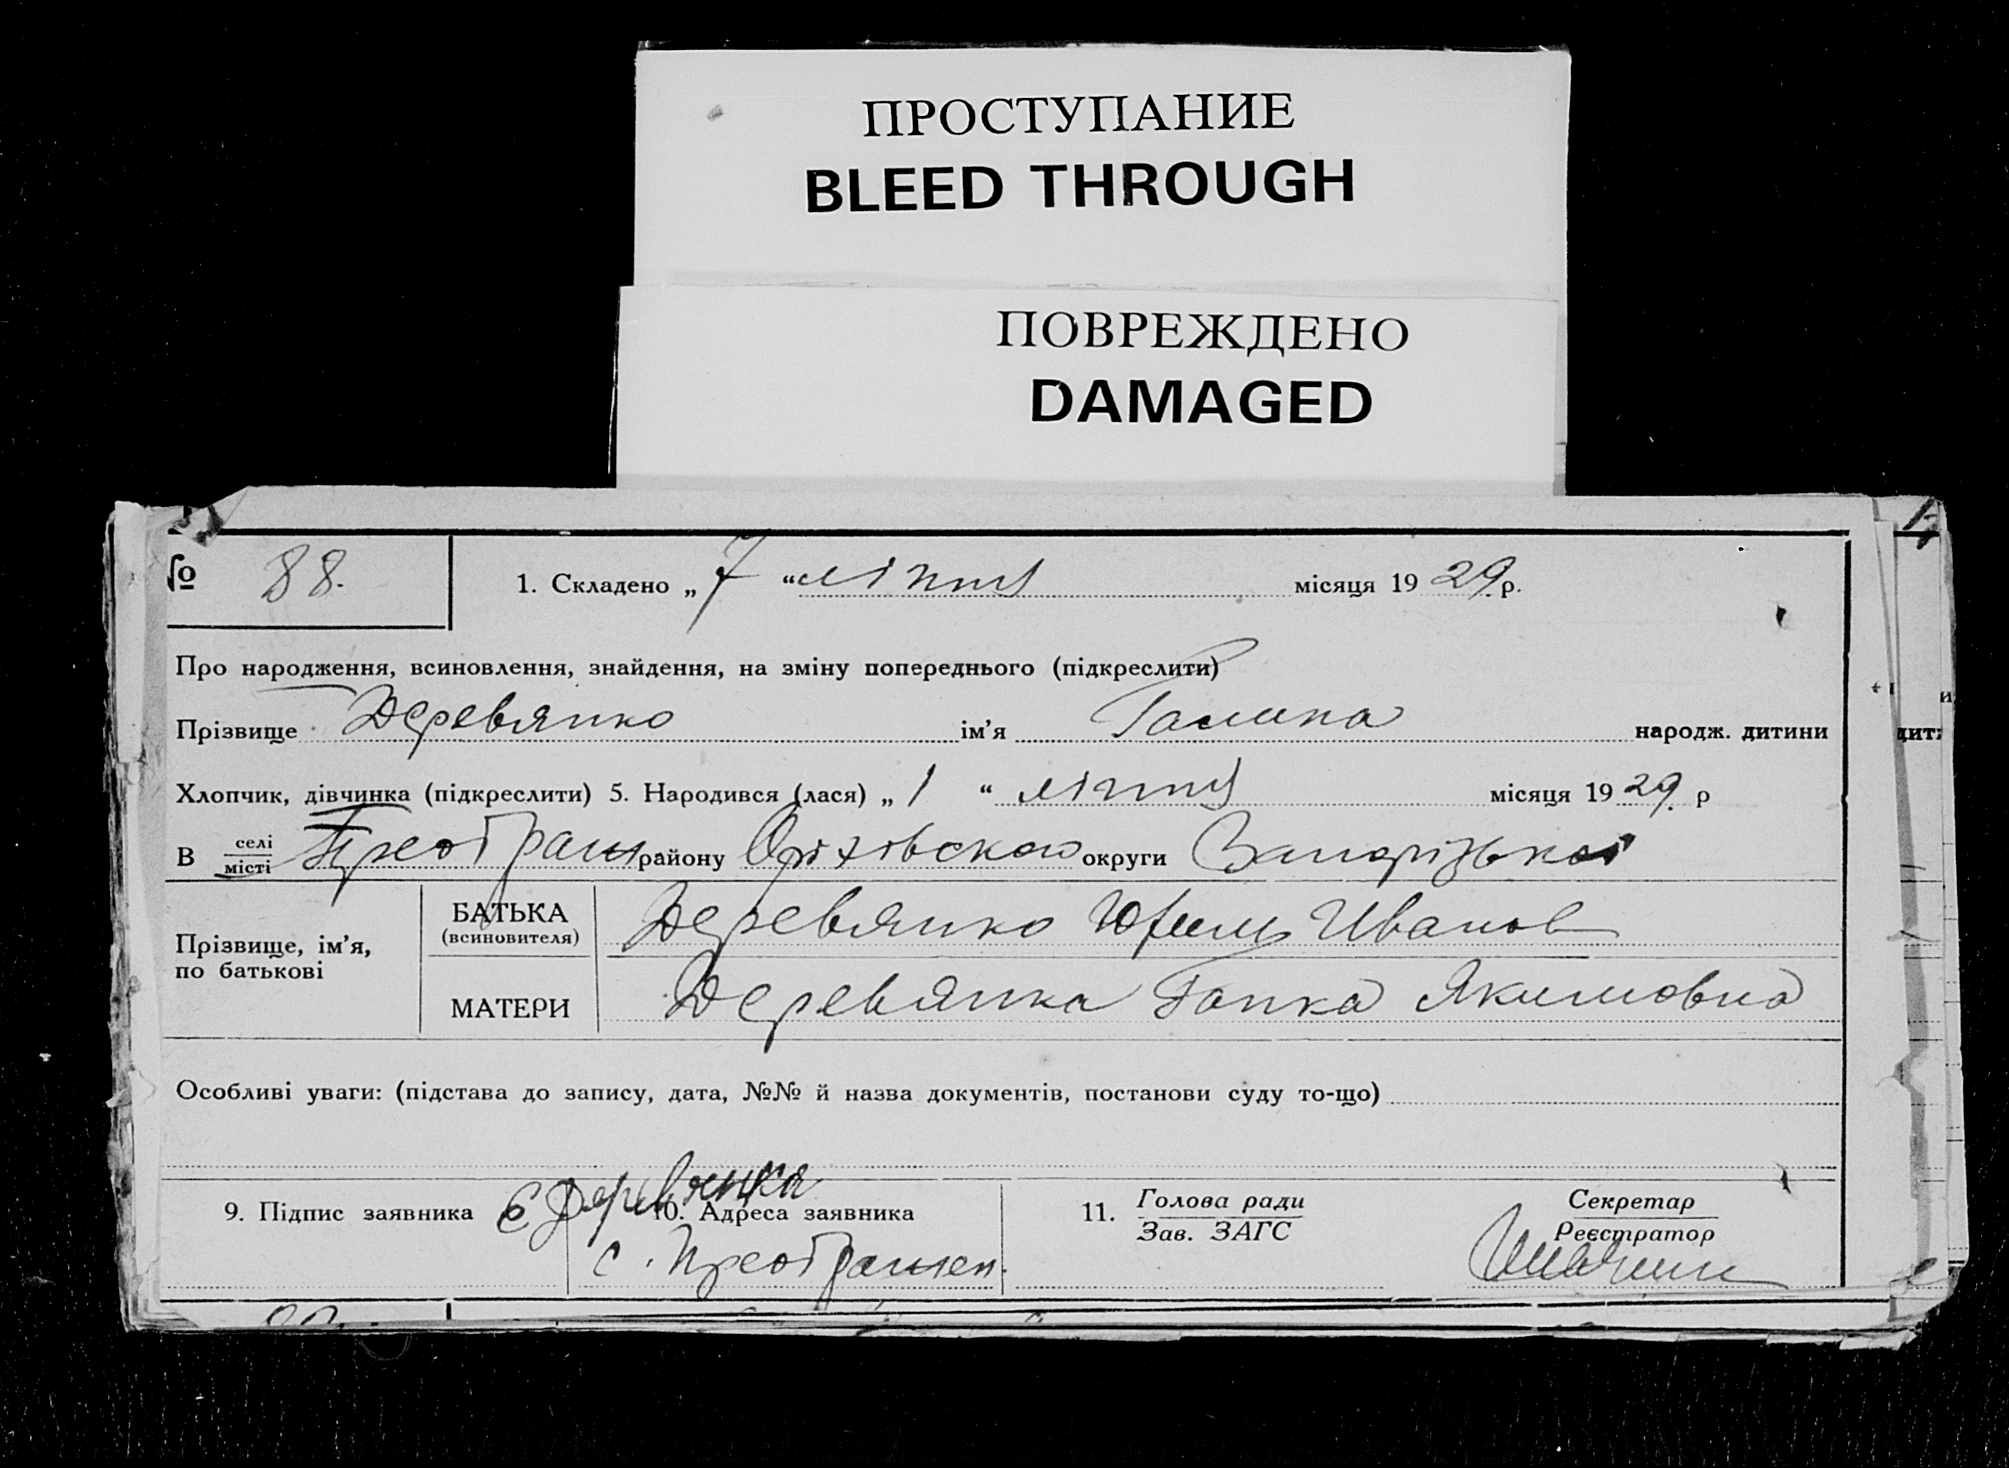 ПРОСТУПАНИЕ
BLEED THROUGH
ПОВРЕЖДЕНО
DAMAGED
№ 88. 1. Складено „ 7 “ ліпня місяця 19 29 р.
Про народження, всиновлення, знайдення, на зміну попереднього (підкреслити)
Прізвище Деревянко ім’я Галина народж. дитини
Хлопчик, дівчинка (підкреслити) 5. Народився (лася) „ 1 “ ліпня місяця 19 29 р
В селі місті Преображ району Оріхівского округи Запорізької
Прізвище, ім’я, по батькові
БАТЬКА (всиновителя) Деревянко Иванов
МАТЕРИ Деревянка Гапка Якимовна
Особливі уваги: (підстава до запису, дата, №№ й назва документів, постанови суду то-що)
9. Підпис заявника Є Деревянка 10. Адреса заявника с. Преображен. 11. Голова ради Зав. ЗАГС Секретар Реєстратор